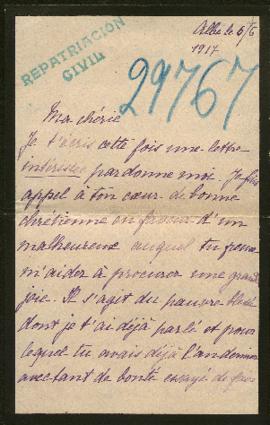 Albi le 5/6
1917
REPATRIACIÓN
CIVIL
29767
Ma chérie
Je t'écris cette fois une lettre
intéressée pardonne moi. Je fais
appel à ton cœur de bonne
chrétienne en faveur d'un
malheureux auquel tu peux
m'aider à procurer une grande
joie. Il s'agit du pauvre
dont je t'ai déjà parlé et pour
lequel tu avais déjà l'an dernier
avec tant de bonté essayé de